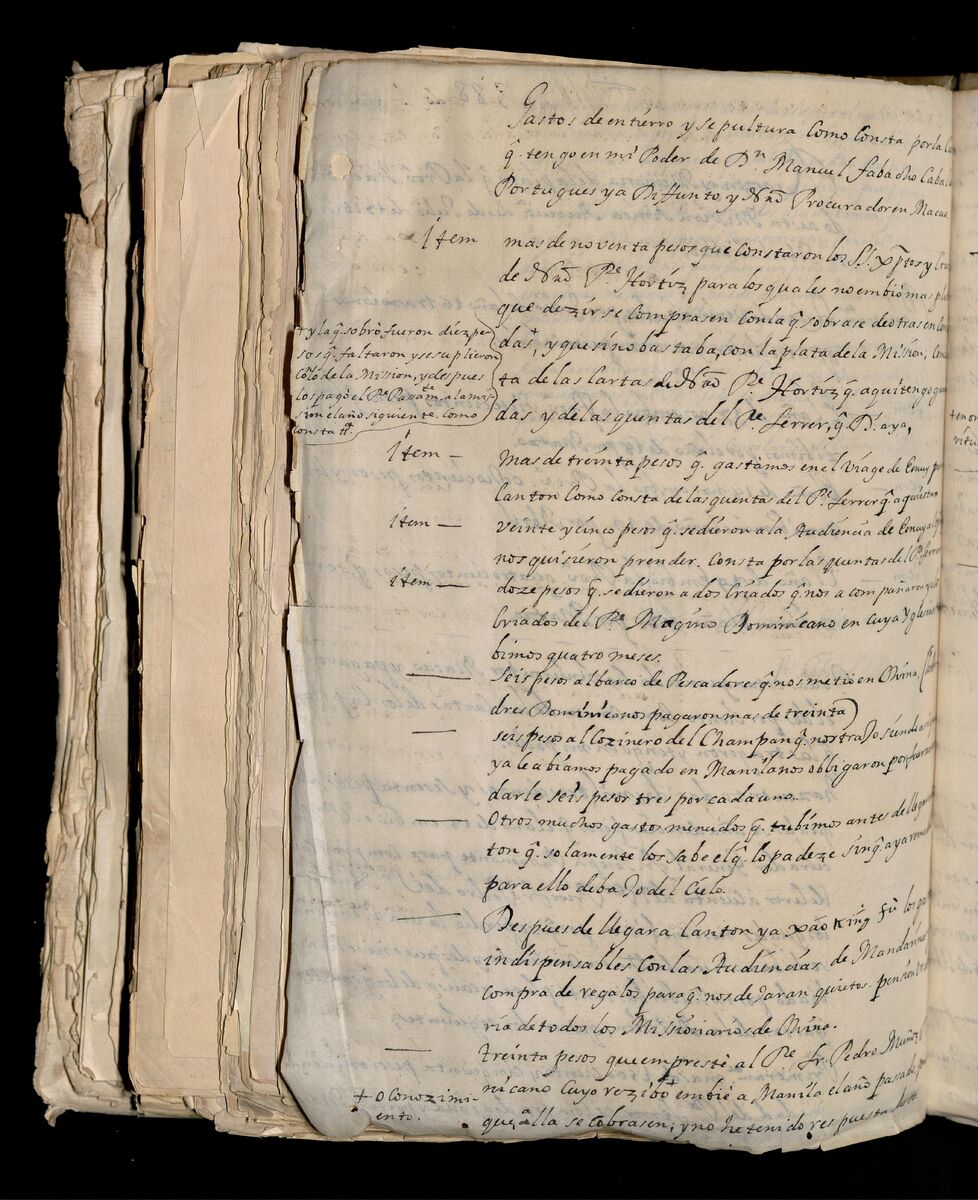 Gastos de entierro y sepultura Como Consta por la
q̃. tengo en mi Poder de Dn. Manuel fabacho
Portugues ya Diffunto y Nrõ Procurador en Macao
item mas de noventa pesos que Constaron los SS. Xp̃tos y
de Nrõ Pe. Hortiz para los quales no embiò mas
que dezir se Comprasen Con la q̃. sobrase de otras
das+, y que si no bastaba, con la plata de la Mission,
ta de las Cartas de Nrõ Pe. Hortiz q̃. aqui tengo
das y de las quentas del Pe. ferrer, q̃. D.s aya,
+ y la q̃. sobrò fueron diez pe
sos q̃. faltaron y se suplieron
de la Mission, y despues
los pagò el Pe. a la mis
sion el año siguiente. Como
Consta
item – Mas de treinta pesos q̃. gastàmos en el viage de Emuy
Canton Como Consta de las quentas del Pe. ferrer q̃. aqui
item — veinte y cinco pesos q̃. se dieron a la Audiencia de Emuy
nos quisieron prender. Consta por las quentas del Pe. ferrer
item — doze pesos q̃. se dieron a dos Criados q̃. nos acompañaron
Criados del Pe. Magino Dominicano en cuya Yglesia
bimos quatro meses.
— Seis pesos al barco de Pescadores q̃. nos metiò en China, (
dres Dominicanos pagaron mas de treinta)
— seis pesos al Cozinero del Champan q̃. nos traJo siendo
ya le abiamos pagado en Manila nos obligaron por fuerza
darle seis pesos tres por cada uno.
— Otros muchos gastos menudos q̃. tubimos antes de llegar
ton q̃. solamente los sabe el q̃. lo padeze sin q̃. aya
para ello debaJo del Cielo.
— Despues de llegar a Canton y a xao King fu los
indispensables Con las Audiencias de Mandarines
Compra de regalos para q̃. nos deJaran quietos. pension
ria de todos los Missionarios de China.
— treinta pesos que emprestè al Pe. fr. Pedro Muñoz
nicano Cuyo rezibo+ embiè a Manila el año passado
que allà se cobrasen, y no he tenido respuesta
+ o Conozimi-
ento.